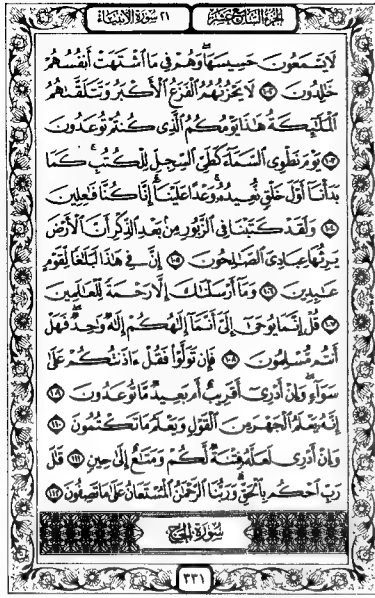 الجزء السابع عشر
٢١ سورة الأنبياء
لَا يَسْمَعُونَ حَسِيسَهَا وَهُمْ فِي مَا اشْتَهَتْ أَنفُسُهُمْ
خَالِدُونَ ١٠٢ لَا يَحْزُنُهُمُ الْفَزَعُ الْأَكْبَرُ وَتَتَلَقَّاهُمُ
الْمَلَائِكَةُ هَٰذَا يَوْمُكُمُ الَّذِي كُنتُمْ تُوعَدُونَ
١٠٣ يَوْمَ نَطْوِي السَّمَاءَ كَطَيِّ السِّجِلِّ لِلْكُتُبِ كَمَا
بَدَأْنَا أَوَّلَ خَلْقٍ نُّعِيدُهُ وَعْدًا عَلَيْنَا إِنَّا كُنَّا فَاعِلِينَ
١٠٤ وَلَقَدْ كَتَبْنَا فِي الزَّبُورِ مِن بَعْدِ الذِّكْرِ أَنَّ الْأَرْضَ
يَرِثُهَا عِبَادِيَ الصَّالِحُونَ ١٠٥ إِنَّ فِي هَٰذَا لَبَلَاغًا لِّقَوْمٍ
عَابِدِينَ ١٠٦ وَمَا أَرْسَلْنَاكَ إِلَّا رَحْمَةً لِّلْعَالَمِينَ
١٠٧ قُلْ إِنَّمَا يُوحَىٰ إِلَيَّ أَنَّمَا إِلَٰهُكُمْ إِلَٰهٌ وَاحِدٌ فَهَلْ
أَنتُم مُّسْلِمُونَ ١٠٨ فَإِن تَوَلَّوْا فَقُلْ آذَنتُكُمْ عَلَىٰ
سَوَاءٍ وَإِنْ أَدْرِي أَقَرِيبٌ أَم بَعِيدٌ مَّا تُوعَدُونَ ١٠٩
إِنَّهُ يَعْلَمُ الْجَهْرَ مِنَ الْقَوْلِ وَيَعْلَمُ مَا تَكْتُمُونَ ١١٠
وَإِنْ أَدْرِي لَعَلَّهُ فِتْنَةٌ لَّكُمْ وَمَتَاعٌ إِلَىٰ حِينٍ ١١١ قَالَ
رَبِّ احْكُم بِالْحَقِّ وَرَبُّنَا الرَّحْمَٰنُ الْمُسْتَعَانُ عَلَىٰ مَا تَصِفُونَ ١١٢
سورة الحج
٣٣١